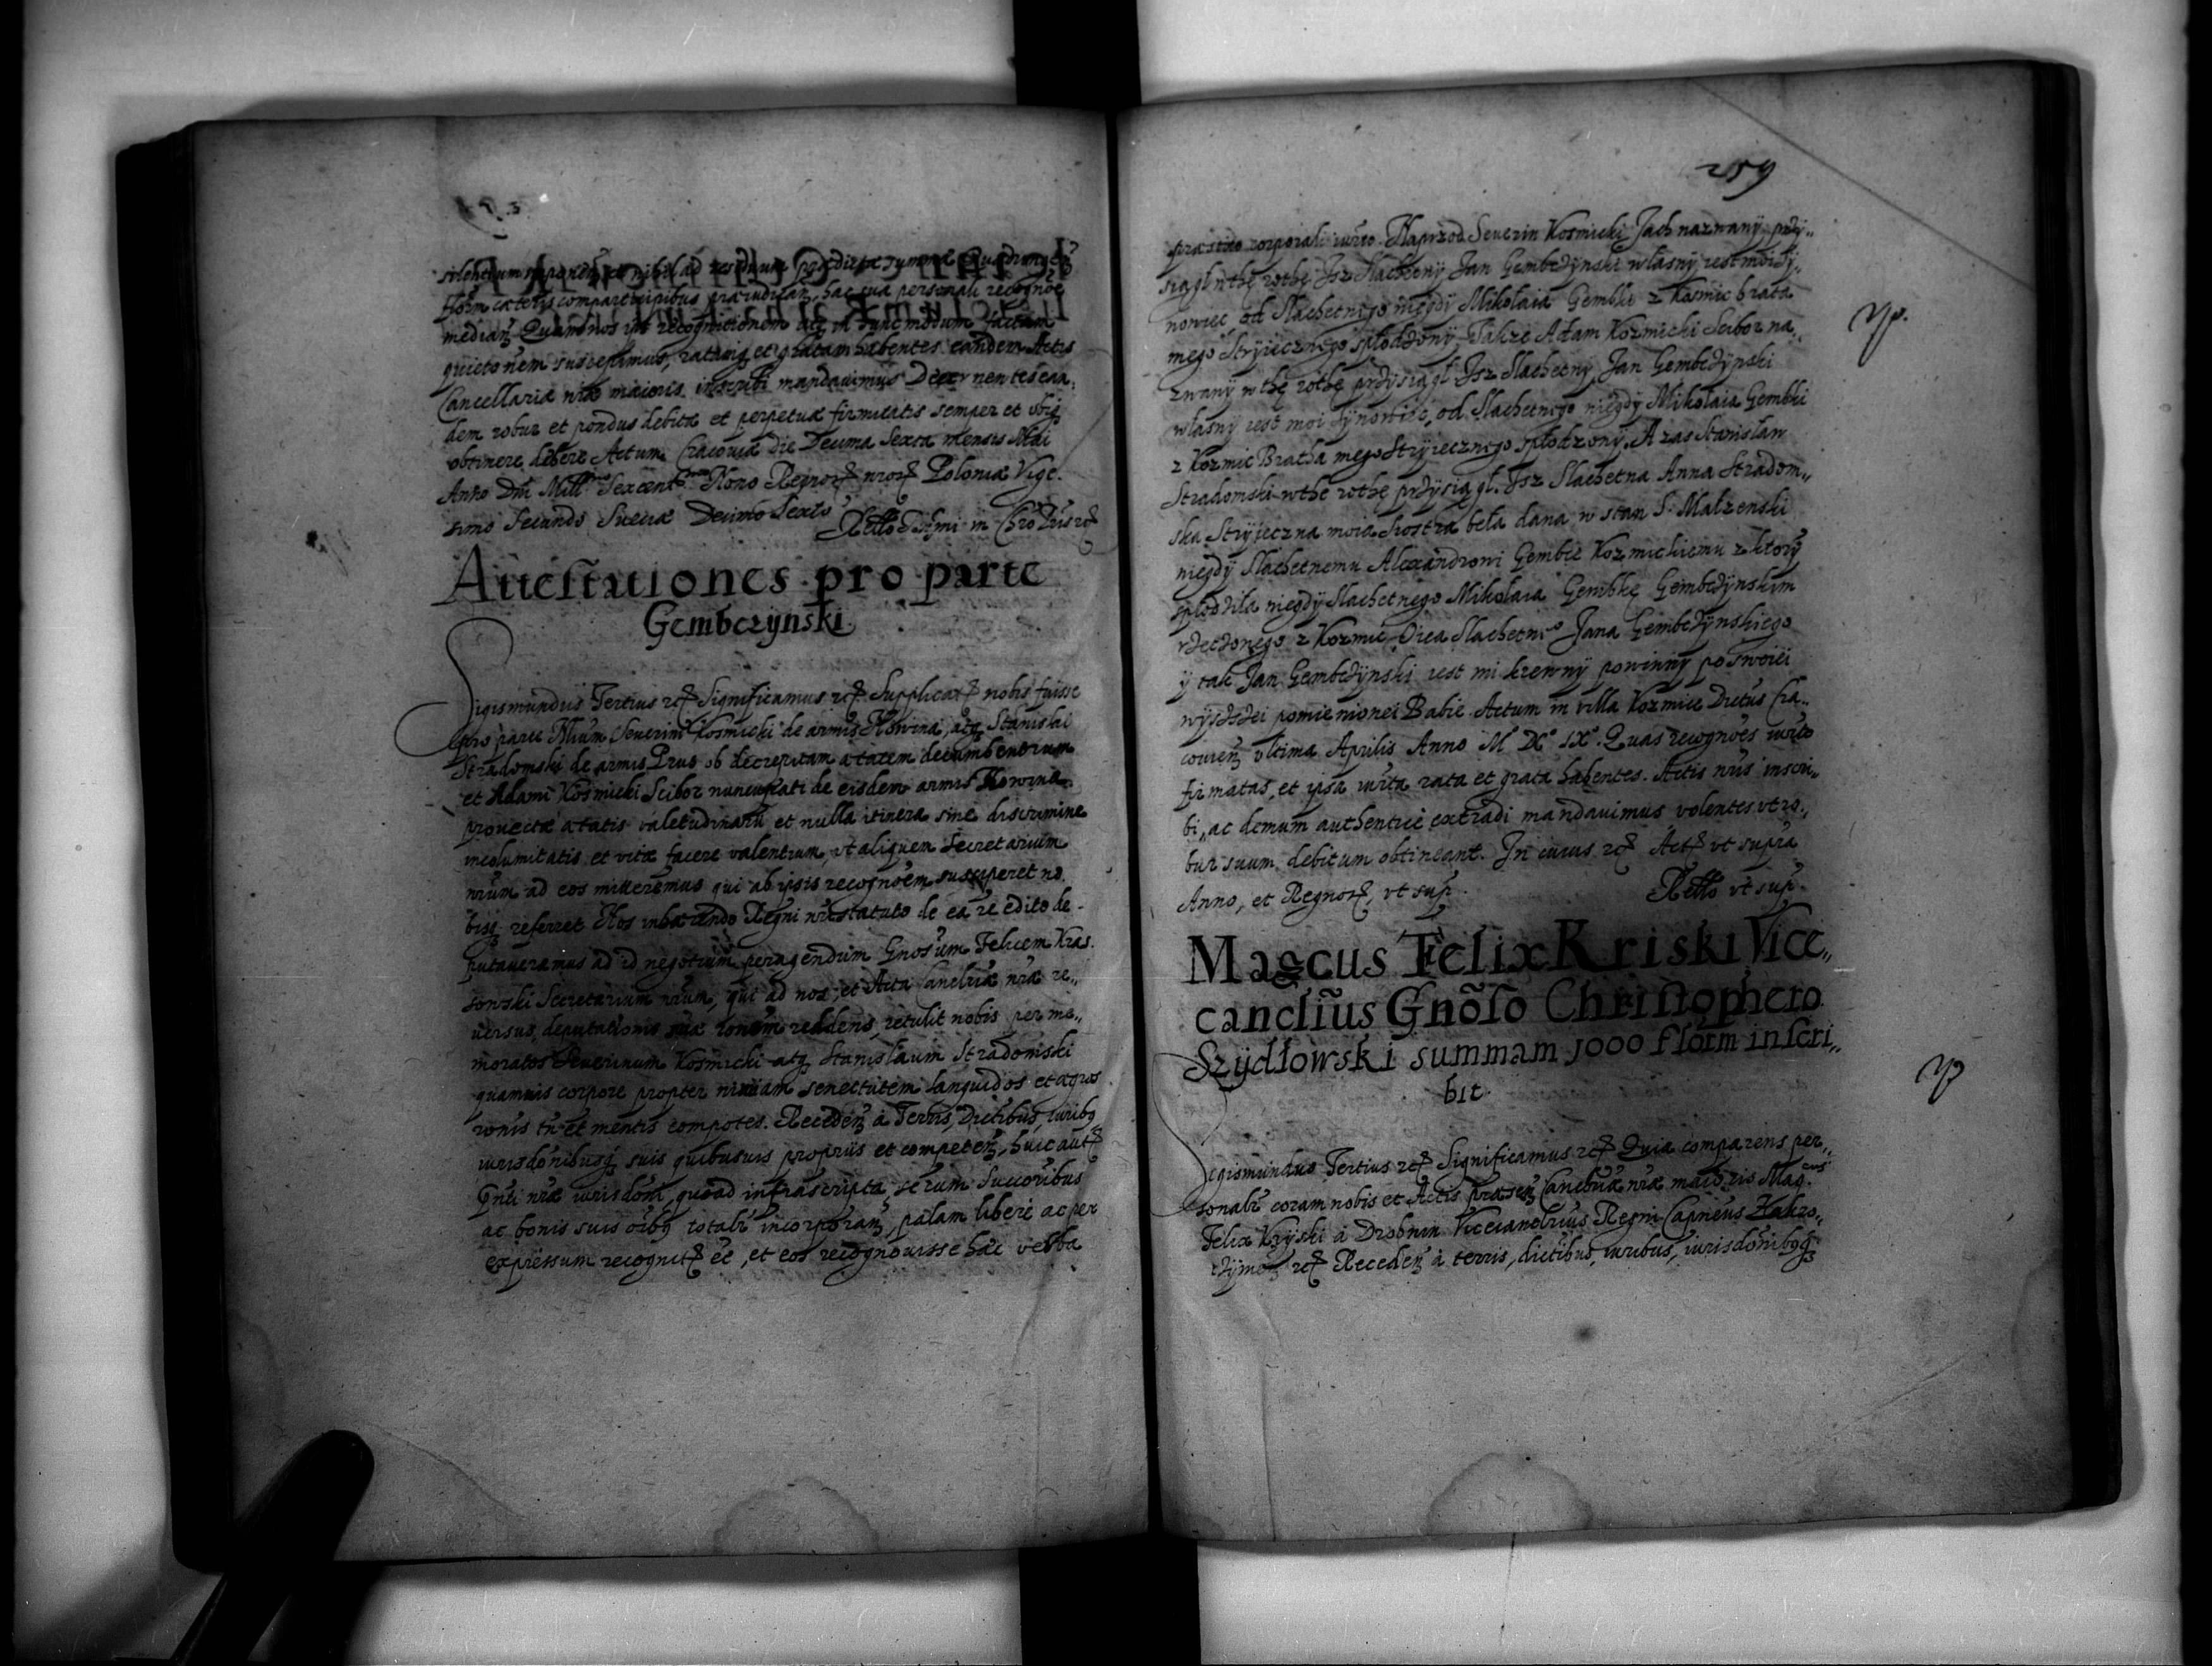 silentium imponen. et nihil ad residuum praedictae summae Quadringen.
flor. caeteris comparticipibus praeiudican. hac sua personali recognoe
median. Quam nos recognitionem atq. in hunc modum factam
quietonem suscepimus, ratamq. et gratam habentes eandem Actis
Cancellariae nrae maioris inscribi mandavimus Decernentes ean„
dem robur et pondus debitae et perpetuae firmitatis semper et ubiq.
obtinere debere Actum Cracoviae Die Decima Sexta mensis Mai
Anno Dni Mill° Sexcent° Nono Regnor. nror. Poloniae Vige.
simo Secundo Sueciae Decimo Sexto
Rello in Chro
Attestationes pro parte
Gembczynski
Sigismundus Tertius etc. Significamus etc. Supplicat. nobis fuisse
pro parte Nlium Severini Kosmicki de armis Rowina, atq. Stanislai
Stradomski de armis Prus ob decrepitam aetatem decumbentium
et Adami Kosmicki Scibor nuncupati de eisdem armis Rowina
provectae aetatis valetudinarii et nulla itinera sine discrimine
incolumitatis et vitae facere valentium ut aliquem Secretarium
nrum ad eos mitteremus qui ab ipsis recognoem susciperet no.
bisq. referret Nos inhaerendo Regni nri statuto de ea re edito de-
putaveramus ad id negotium peragendum Gnosum Felicem Kras.
sowski Secretarium nrum, qui ad nos, et Acta Canclriae nrae re„
versus, deputationis suae ronem reddens, retulit nobis per me„
moratos Severinum Kosmicki atq. Stanislaum Stradomski
quamvis corpore propter nimiam senectutem languidos et aegros
ronis tn et mentis compotes. Receden. à Terris, Districtibus, iuribq
iurisdonibusq. suis quibusvis propriis et competen. huic aut.
pnti nrae iurisdoni, quoad infrascripta, se cum Succoribus
ac bonis suis oibq totalr incorporan. palam liberè ac per
expressum recognit. ee, et eos recognovisse hac verba
259
praestito corporali iurto. Naprzod Severin Kosmicki Jach nazwany przy„
siągl w thę rothę Isz Slachetny Jan Gembczynski wlasny iest moi sy„
nowiec od Slachetnego niegdy Mikolaia Gembki z Kosmic brata
mego Stryiecznego splodzony, Takze Adam Kozmicki Scibor na„
zwany w thę rothę przysiągl Isz Slachetny Jan Gembczynski
wlasny iest moi synowiec, od Slachetnego niegdy Mikolaia Gembki
z Kozmic Brata mego Stryiecznego splodzony. A zas Stanislaw
Stradomski w thę rothę przysiągl. Isz Slachetna Anna Stradom„
ska Stryieczna moia Siostra bela dana w stan S. Malzenski
niegdy Slachetnemu Alexandrowi Gembce Kozmickiemu z ktory
splodzila niegdy Slachetnego Mikolaia Gembkę Gembczynskim
rzeczonego z Kozmic Oica Slachetnego Jana Gembczynskiego
y tak Jan Gembczynski iest mi krewny powinny po swoiei
wyszszei pomienionei Babie. Actum in villa Kozmice Dictus Cra„
covien. ultima Aprilis Anno M° DC° IX° Quas recognoes iurto
firmatas, et ipsa iurta rata et grata habentes. Actis nris inscri„
bi, ac demum authenticè extradi mandavimus volentes ut ro„
bur suum debitum obtineant. In cuius etc. Act. ut supra
Anno, et Regnor. ut sup.
Rello ut sup.
Magcus Felix Kriski Vice„
canclius Gnoso Christophero
Szydłowski summam 1000 florm inscri„
bit.
Sigismundus Tertius etc. Significamus etc. Quia comparens per„
sonalr coram nobis et Actis praesen. Canclriae nrae maioris Mag.cus
Felix Kryski à Drobnin Vicecanclrius Regni Capneus Zakro„
czymen. etc. Receden. à terris, dictibus, iuribus, iurisdonibqq.